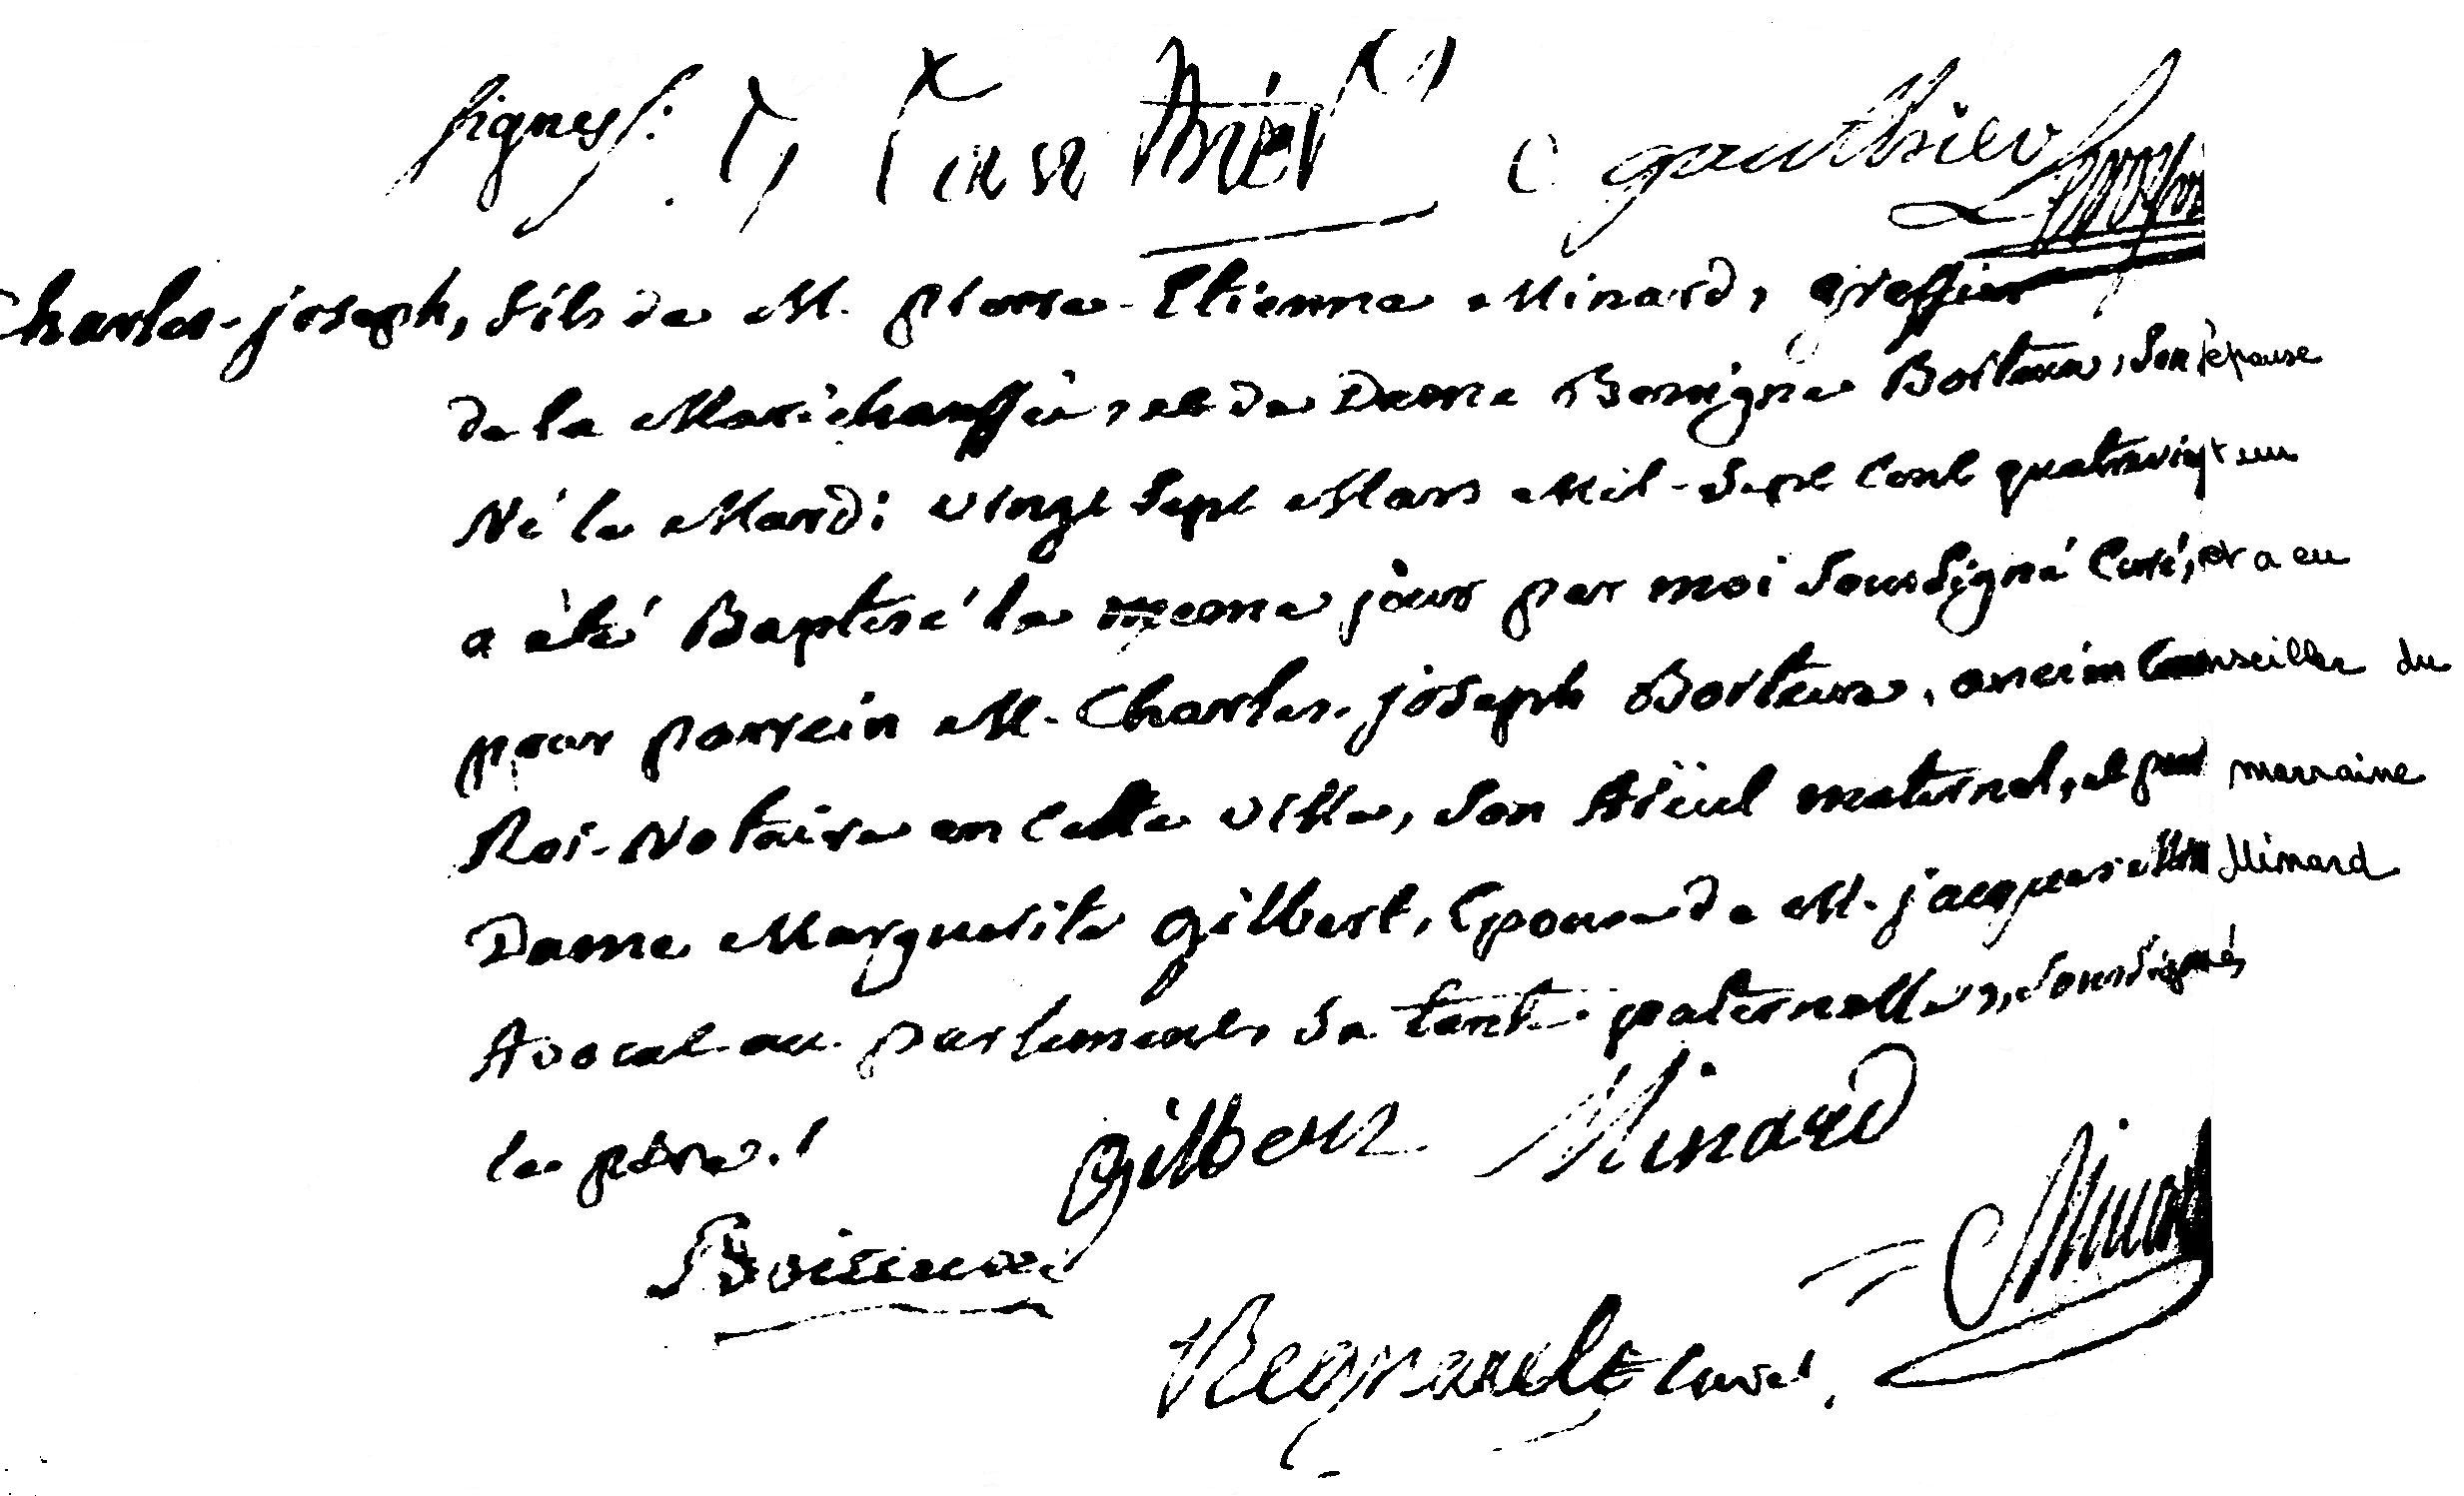 signés:
gauthier
Charles-joseph, fils de M. pierre-Etienne Minard, greffier
de la Marêchaussée, et de Dame Benigne Boiteux, son épouse
Né le Mardi vingt sept Mars Mil-Sept Cent quatrevingt un
a été Baptisé le meme jour par moi soussigné Curé, et a eu
pour parrein M. Charles-joseph Boiteux, ancien Conseiller du
Roi-Notaire en cette ville, son Aïeul maternel, et pour marraine
Dame Marguerite Gilbert, Epouse de M. jacques Minard
Avocat au parlement, sa tante paternelle, soussignés
le père.
Gilbert Minard
Minard
Regnault Curé